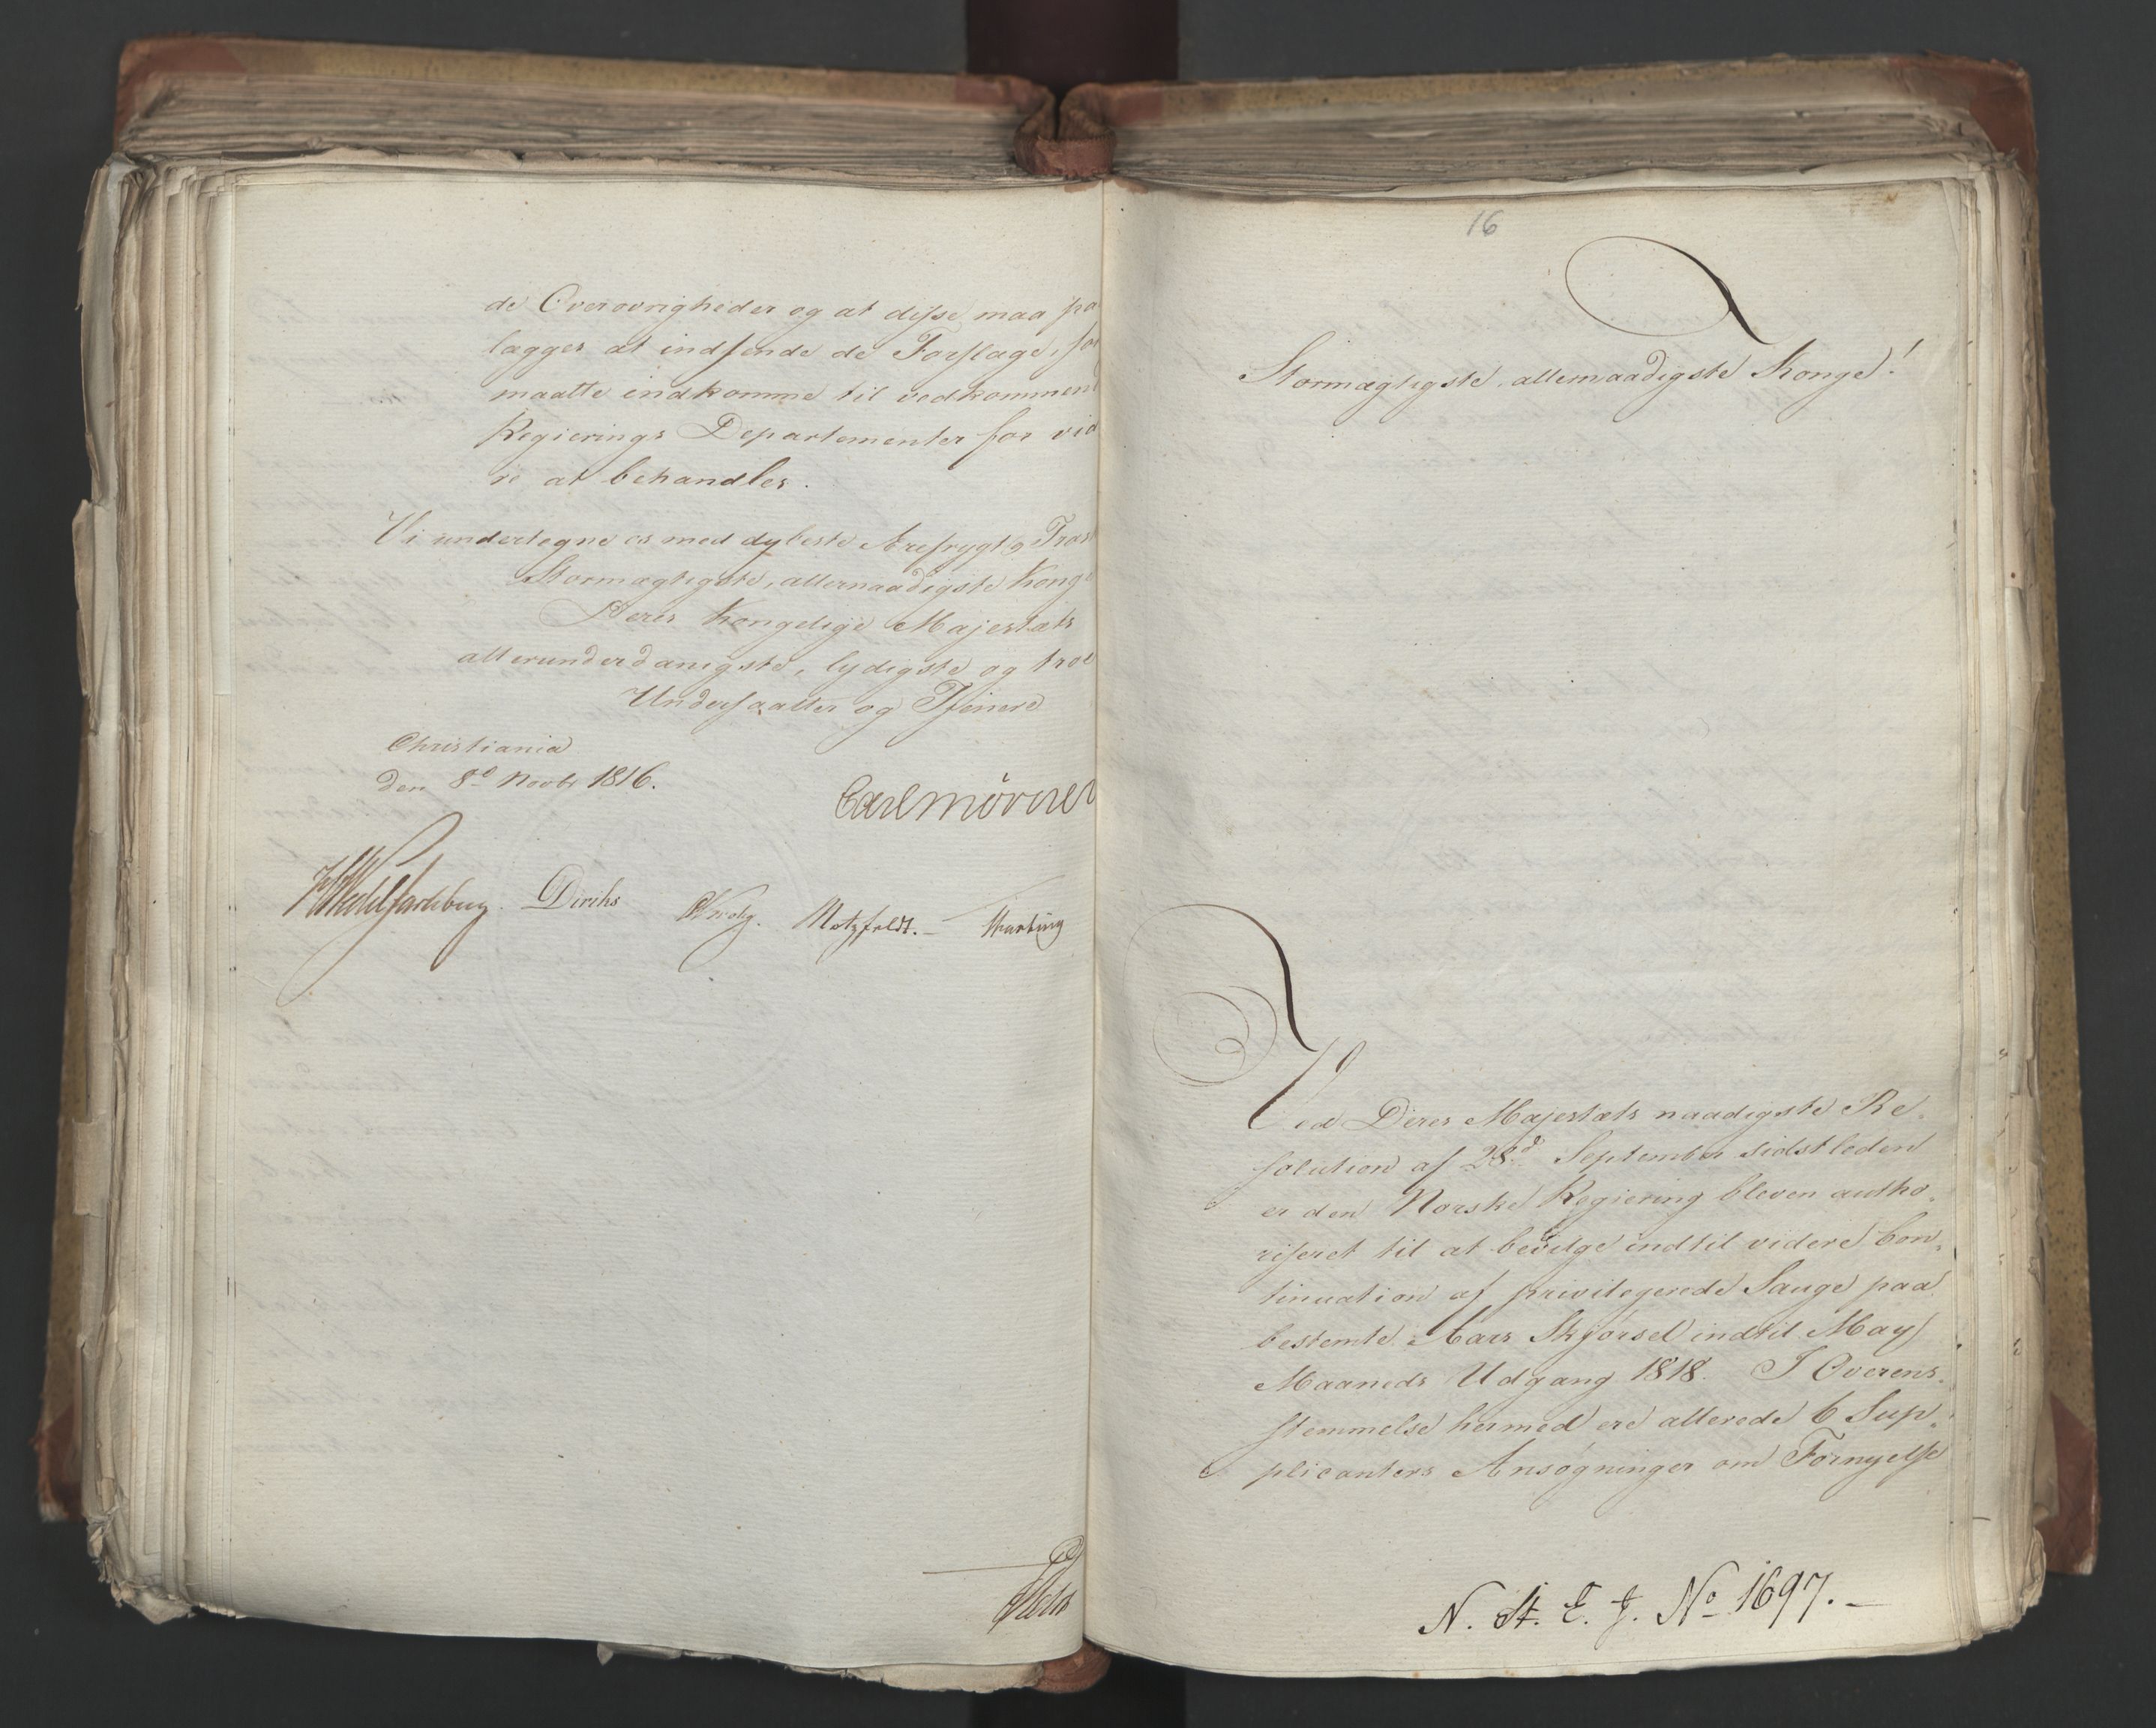 de Overøvrigheder og at disse maa pa
lægges at indsende de Forslage, so
maatte indkomme til vedkommend
Regierings Departementer for vid
re at behandles.
Vi undertegne os med dybeste Ærefrygt og Trosk
Stormægtigste, allernaadigste Kong
Deres Kongelige Majestæts
allerunderdanigste, lydigste og troe
Undersaatter og Tjenere
Christiania
den 8d Novbr 1816.
Carl Mörner
HWedel Jarlsberg. Diriks Krog. Motzfeldt.
16
Stormægtigste, allernaadigste Konge!
Ved Deres Majestæts naadigste Re-
solution af 28d September sidstleden
er den Norske Regiering bleven autho-
riseret til at bevilge indtil videre Con-
tinuation af privilegerede Sauge paa
bestemte Aars Skjørsel indtil May
Maaneds Udgang 1818. I Overens-
stemmelse hermed ere allerede 6 Sup-
plicanters Ansøgninger om Fornyelse
N. St. E. J. No 1697.